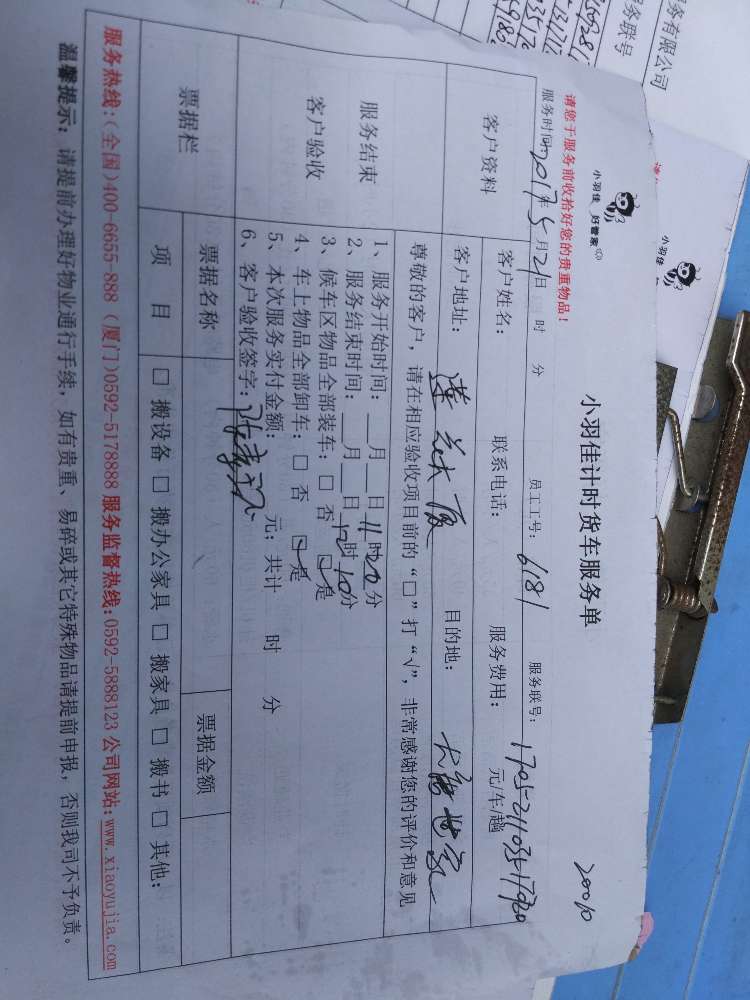 小羽佳 好管家
小羽佳计时货车服务单
20010
请您于服务前收拾好您的贵重物品！
服务时间：2017年5月21日 时 分 员工工号：6181 服务联号：
客户资料 客户姓名： 联系电话： 服务费用： 元/车/趟
客户地址： 目的地：
尊敬的客户，请在相应验收项目前的“□”打“√”，非常感谢您的评价和意见
服务结束
客户验收
1、服务开始时间：__月__日11时20分
2、服务结束时间：__月__日12时10分
3、候车区物品全部装车：□ 否 ☑ 是
4、车上物品全部卸车：□ 否 ☑ 是
5、本次服务实付金额： 元；共计 时 分
6、客户验收签字：
票据栏 票据名称 票据金额
项 目 □ 搬设备 □ 搬办公家具 □ 搬家具 □ 搬书 □ 其他：
服务热线：(全国)400-6655-888 (厦门)0592-5178888 服务监督热线：0592-5888123 公司网站：www.xiaoyujia.com
温馨提示：请提前办理好物业通行手续，如有贵重、易碎或其它特殊物品请提前申报，否则我司不予负责。
小羽佳
务有限公司
务联号